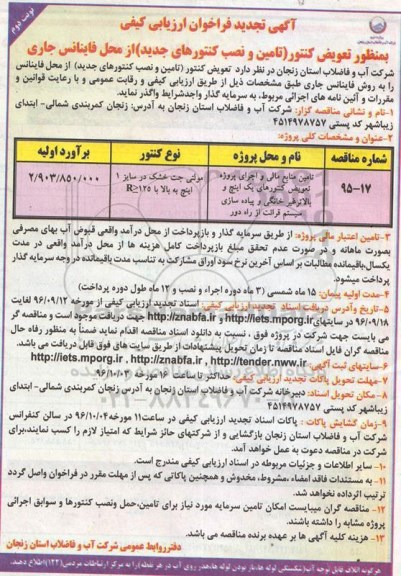 نوبت دوم
آگهی تجدید فراخوان ارزیابی کیفی
بمنظور تعویض کنتور(تامین و نصب کنتورهای جدید)از محل فاینانس جاری
شرکت آب و فاضلاب استان زنجان در نظر دارد تعویض کنتور (تامین و نصب کنتورهای جدید) از محل فاینانس
را به روش فاینانس جاری طبق مشخصات ذیل از طریق ارزیابی کیفی و رقابت عمومی و با رعایت قوانین و
مقررات و آئین نامه های اجرائی مربوط، به سرمایه گذار واجدشرایط واگذار نماید.
۱-نام و نشانی مناقصه گزار: شرکت آب و فاضلاب استان زنجان به آدرس: زنجان کمربندی شمالی- ابتدای
زیباشهر کد پستی ۴۵۱۴۹۷۸۷۵۷
۲-عنوان و مشخصات کلی پروژه:
شماره مناقصه نام و محل پروژه نوع کنتور برآورد اولیه
۹۵-۱۷ تامین منابع مالی و اجرای پروژه تعویض کنتورهای یک اینچ و بالاترغیر خانگی و پیاده سازی سیستم قرائت از راه دور
مولتی جت خشک در سایز ۱ اینچ به بالا با R≥۱۲۵
۲/۹۰۳/۸۵۰/۰۰۰
۳-تامین اعتبار مالی پروژه: از طریق سرمایه گذار و بازپرداخت از محل درآمد واقعی قبوض آب بهای مصرفی
بصورت ماهانه و در صورت عدم تحقق مبلغ بازپرداخت کامل هزینه ها از محل درآمد واقعی در مدت
یکسال،باقیمانده مطالبات بر اساس آخرین نرخ سود اوراق مشارکت به تناسب مدت باقیمانده در وجه سرمایه گذار
پرداخت میشود.
۴-مدت اولیه پیمان: ۱۵ ماه شمسی (۳ ماه دوره اجراء و نصب و ۱۲ ماه طول دوره پرداخت)
۵-تاریخ و آدرس دریافت اسناد تجدید ارزیابی کیفی: اسناد تجدید ارزیابی کیفی از مورخه ۹۶/۰۹/۱۲ لغایت
۹۶/۰۹/۱۸ در سایتهای http://iets.mporg.ir و http://znabfa.ir جهت دریافت موجود است و مناقصه گر
می بایست جهت شرکت در پروژه فوق ، نسبت به دانلود اسناد مناقصه اقدام نماید ضمناً به منظور رفاه حال
مناقصه گران فایل اسناد مناقصه تا زمان تحویل پیشنهادات از طریق سایت های فوق قابل دریافت می باشد.
۶-سایتهای ثبت آگهی: http://iets.mporg.ir , http://tender.nww.ir , http://znabfa.ir
۷-مهلت تحویل پاکات تجدید ارزیابی کیفی: حداکثر تا ساعت ۱۶ مورخه ۹۶/۱۰/۰۳
۸- مکان تحویل اسناد: دبیرخانه شرکت آب و فاضلاب استان زنجان به آدرس زنجان کمربندی شمالی- ابتدای
زیباشهر کد پستی ۴۵۱۴۹۷۸۷۵۷
۹-زمان گشایش پاکات : پاکات اسناد تجدید ارزیابی کیفی در ساعت۱۱ مورخه۹۶/۱۰/۰۴ در سالن کنفرانس
شرکت آب و فاضلاب استان زنجان بازگشایی و از شرکتهای حائز شرایط که امتیاز لازم را کسب نمایند،برای
شرکت در مناقصه دعوت به عمل خواهد آمد.
۱۰- سایر اطلاعات و جزئیات مربوطه در اسناد ارزیابی کیفی مندرج است.
۱۱- به مستندات فاقد امضاء ،مشروط، مخدوش و همچنین پاکاتی که پس از مهلت مقرر در فراخوان واصل گردد
ترتیب اثرداده نخواهد شد.
۱۲- مناقصه گران میبایست امکان تامین سرمایه مورد نیاز برای تامین،حمل ونصب کنتورها و سوابق اجرائی
پروژه مشابه را داشته باشند.
۱۳- هزینه کلیه آگهی ها بر عهده برنده مناقصه می باشد.
دفترروابط عمومی شرکت آب و فاضلاب استان زنجان